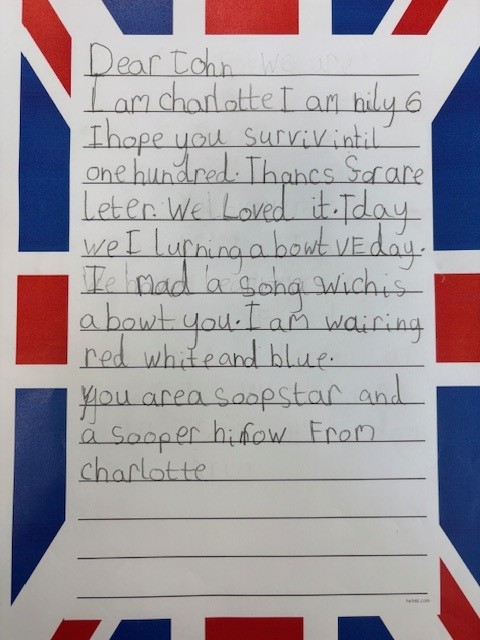 Dear Iohn
I am charlotte I am nily 6
I hope you surviv intil
one hundred. Thancs for are
leter. We Loved it. Tday
we I lurning abowt VE day.
I mad a song wich is
abowt you. I am wairing
red white and blue.
you are a soopstar and
a sooper hirow From
charlotte